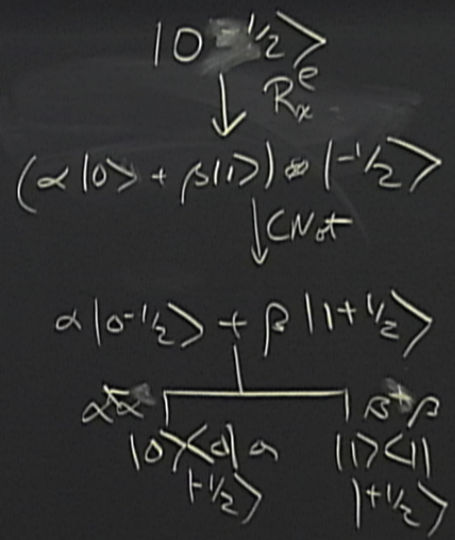 |0 -1/2>
↓ Rₓᵉ
(α|0> + β|1>) ⊗ |-1/2>
↓ CNot
α|0 -1/2> + β|1 +1/2>
α*α β*β
|0><0| |1><1|
|-1/2> |+1/2>